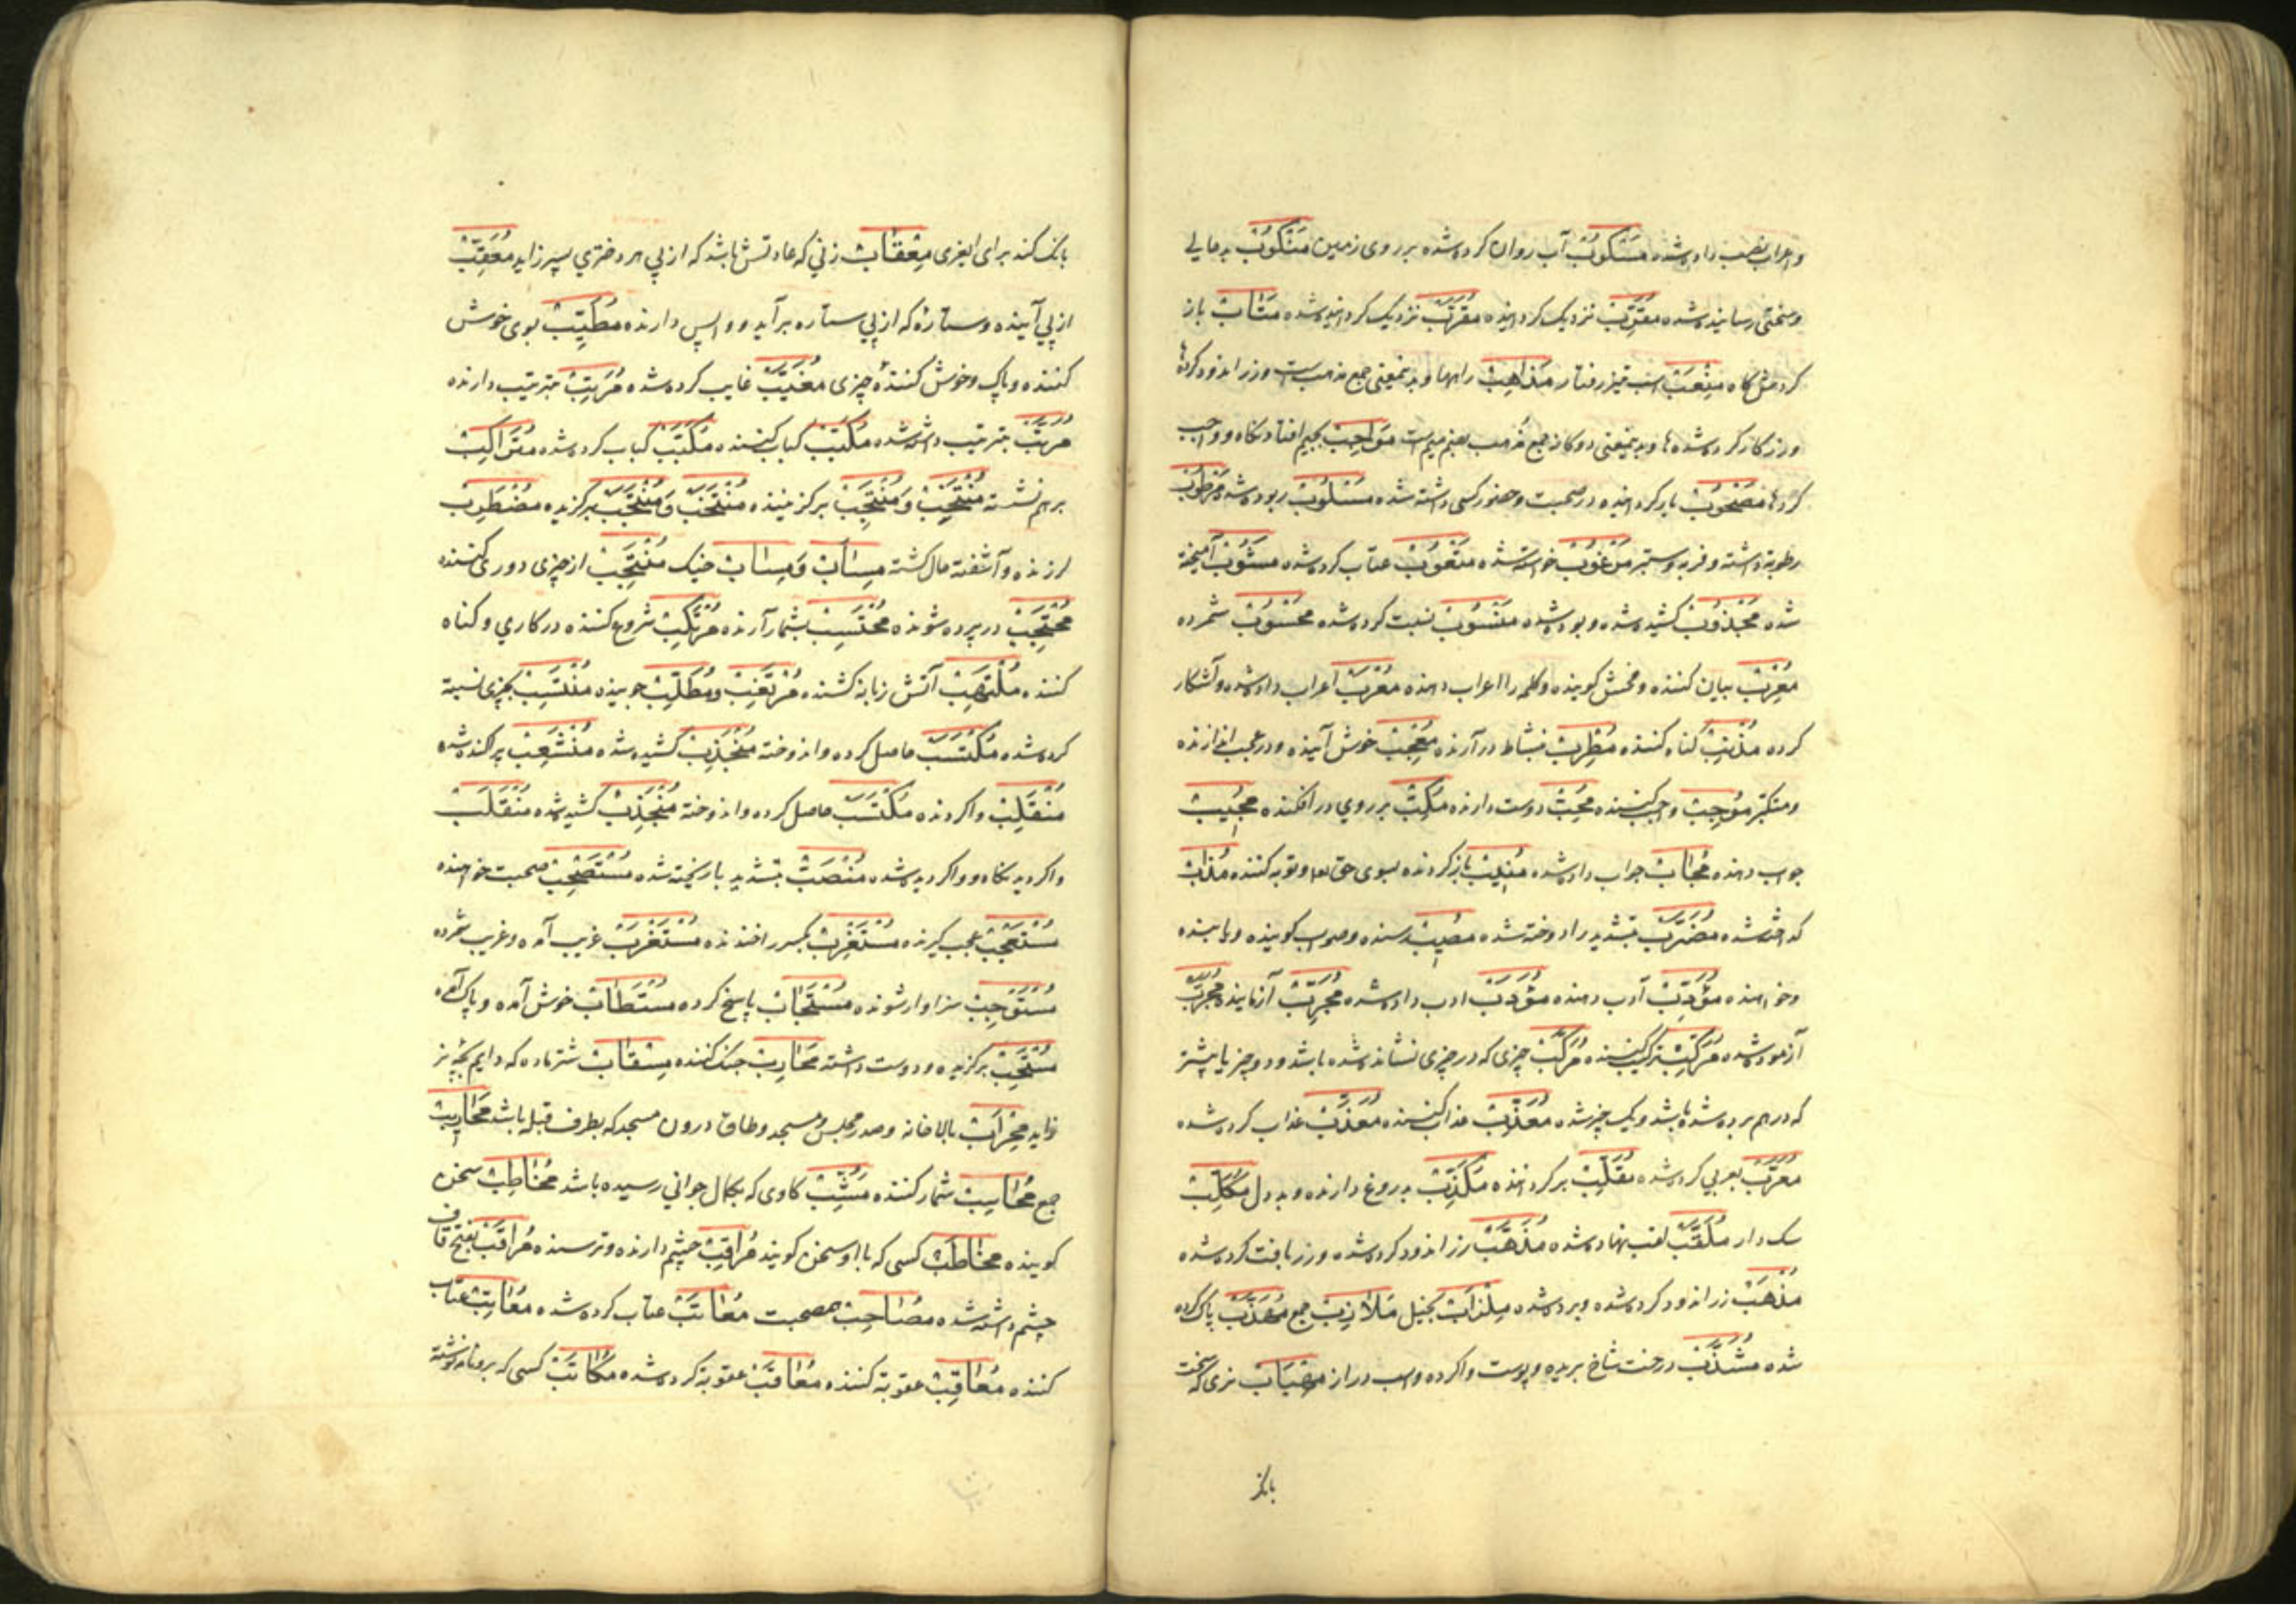 و اعراب نصب داده شده مَسْکُوبْ آب روان کرده شده بر روی زمین مَنْکُوبْ بدحالی
و سختی رسانیده شده مُقَرِّبْ نزدیک گرداننده مُقَرَّبْ نزدیک گردانیده شده مَثَابْ باز
کردمش گاه مِنْعَبْ اسب تیز رفتار مَذَاهِبْ راهها و بدینمعنی جمع مذهب است و زر اندود کردها
و زرکار کرده شده ها و بدینمعنی دوکانه جمع مُذهب بضم میم است مَوَاجِبْ بجیم افتادنگاه و واجب
کردها مَصْحُوبْ یار گرداننده در صحبت و حضور کسی داشته شده مَسْلُوبْ ربوده شده مَرْطُوبْ
رطوبة داشته و فربه و ستبر مَرْغُوبْ خواسته شده مَعْتُوبْ عتاب کرده شده مَشُوبْ آمیخته
شده مَجْذُوبْ کشیده شده و بوده شده مَنْسُوبْ نسبت کرده شده مَحْسُوبْ شمرده
مُعْرِبْ بیان کننده و فحش گوینده و کلمه را اعراب دهنده مُعْرَبْ اعراب داده شده و آشکار
کرده مُذْنِبْ گناه کننده مُطْرِبْ نشاط درآرنده مُعْجِبْ خوش آینده و در عجب اندازنده
و متکبر مُوجِبْ واجب کننده مُحِبّْ دوست دارنده مُکِبّْ بر روی در افکنده مُجِیبْ
جواب دهنده مُجَابْ جواب داده شده مُنِیبْ بازگردنده بسوی حق تعالی و توبه کننده مُذَابْ
گداخته شده مُضَرَّبْ بتشدید را دوخته شده مُصِیبْ رسنده و صواب گوینده و یابنده
و خواهنده مُؤَدِّبْ ادب دهنده مُؤَدَّبْ ادب داده شده مُجَرِّبْ آزماینده مُجَرَّبْ
آزموده شده مُرَکِّبْ ترکیب کننده مُرَکَّبْ چیزی که در چیزی نشانده شده باشد و دو چیز یا بیشتر
که درهم برده شده باشد و یک چیز شده مُعَذِّبْ عذاب کننده مُعَذَّبْ عذاب کرده شده
مُعَرَّبْ بعربی کرده شده مُقَلِّبْ برگرداننده مُکَذِّبْ بدروغ دارنده و بددل مُکَلِّبْ
سک دار مُلَقَّبْ لقب نهاده شده مُذَهَّبْ زر اندود کرده شده و زر بافت کرده شده
مُذْهَبْ زر اندود کرده شده و برده شده مِلْزَابْ بخیل مَلَازِبْ جمع مُهَذَّبْ پاک کرده
شده مُشَذَّبْ درخت شاخ بریده و پوست واکرده و اسب دراز مِهْبَابْ نری که سخت
بانگ
بانگ کند برای الغزی مِعْقَابْ زنی که عادتش باشد که از پی هر دختری پسر زاید مُعَقِّبْ
از پی آینده و ستاره که از پی ستاره برآید و واپس دارنده مُطَیِّبْ بوی خوش
کننده و پاک و خوش کنندهٔ چیزی مُغَیَّبْ غایب کرده شده مُرَتِّبْ بترتیب دارنده
مُرَتَّبْ بترتیب داشته شده مُکَبِّبْ کباب کننده مُکَبَّبْ کباب کرده شده مُتَرَاکِبْ
برهم نشسته مُنْتَخِبْ وَ مُنْتَجِبْ برگزیننده مُنْتَخَبْ وَ مُنْتَجَبْ برگزیده مُضْطَرِبْ
لرزنده و آشفته حال گشته مِسْأَبْ وَ مِسَابْ خیک مُجْتَنِبْ از چیزی دوری کننده
مُحْتَجِبْ در پرده شونده مُحْتَسِبْ بشمار آرنده مُرْتَکِبْ شروع کننده در کاری و گناه
کننده مُلْتَهِبْ آتش زبانه کشنده مُرْتَغِبْ و مُطَّلِبْ جوینده مُنْتَسِبْ بچیزی نسبة
کرده شده مُکْتَسَبْ حاصل کرده و اندوخته مُنْجَذِبْ کشیده شده مُنْشَعِبْ پراکنده شده
مُنْقَلِبْ واگردنده مُکْتَسَبْ حاصل کرده و اندوخته مُنْجَذِبْ کشیده شده مُنْقَلَبْ
واگردیدنگاه و واگردیده شده مُنْصَبّْ بتشدید با ریخته شده مُسْتَصْحِبْ صحبت خواهنده
مُسْتَعْجِبْ عجب گیرنده مُسْتَغْرِبْ بکسر را خندنده مُسْتَغْرَبْ غریب آمده و غریب شمرده
مُسْتَوْجِبْ سزاوار شونده مُسْتَجَابْ پاسخ کرده مُسْتَطَابْ خوش آمده و پاک آمده
مُسْتَحَبْ برگزیده و دوست داشته مُحَارِبْ جنگ کننده مِسْقَابْ شتر ماده که دایم بچه نر
زاید مِحْرَابْ بالاخانه و صدر مجلس و مسجد و طاق درون مسجد که بطرف قبله باشد مَحَارِیبْ
جمع مُحَاسِبْ شمار کننده مُشِبّْ گاوی که بکمال جوانی رسیده باشد مُخَاطِبْ سخن
گوینده مُخَاطَبْ کسی که با او سخن گویند مُرَاقِبْ چشم دارنده و ترسنده مُرَاقَبْ بفتح قاف
چشم داشته شده مُصَاحِبْ همصحبت مُعَاتَبْ عتاب کرده شده مُعَاتِبْ عتاب
کننده مُعَاقِبْ عقوبة کننده مُعَاقَبْ عقوبة کرده شده مُکَاتَبْ کسی که برو نامه نوشته